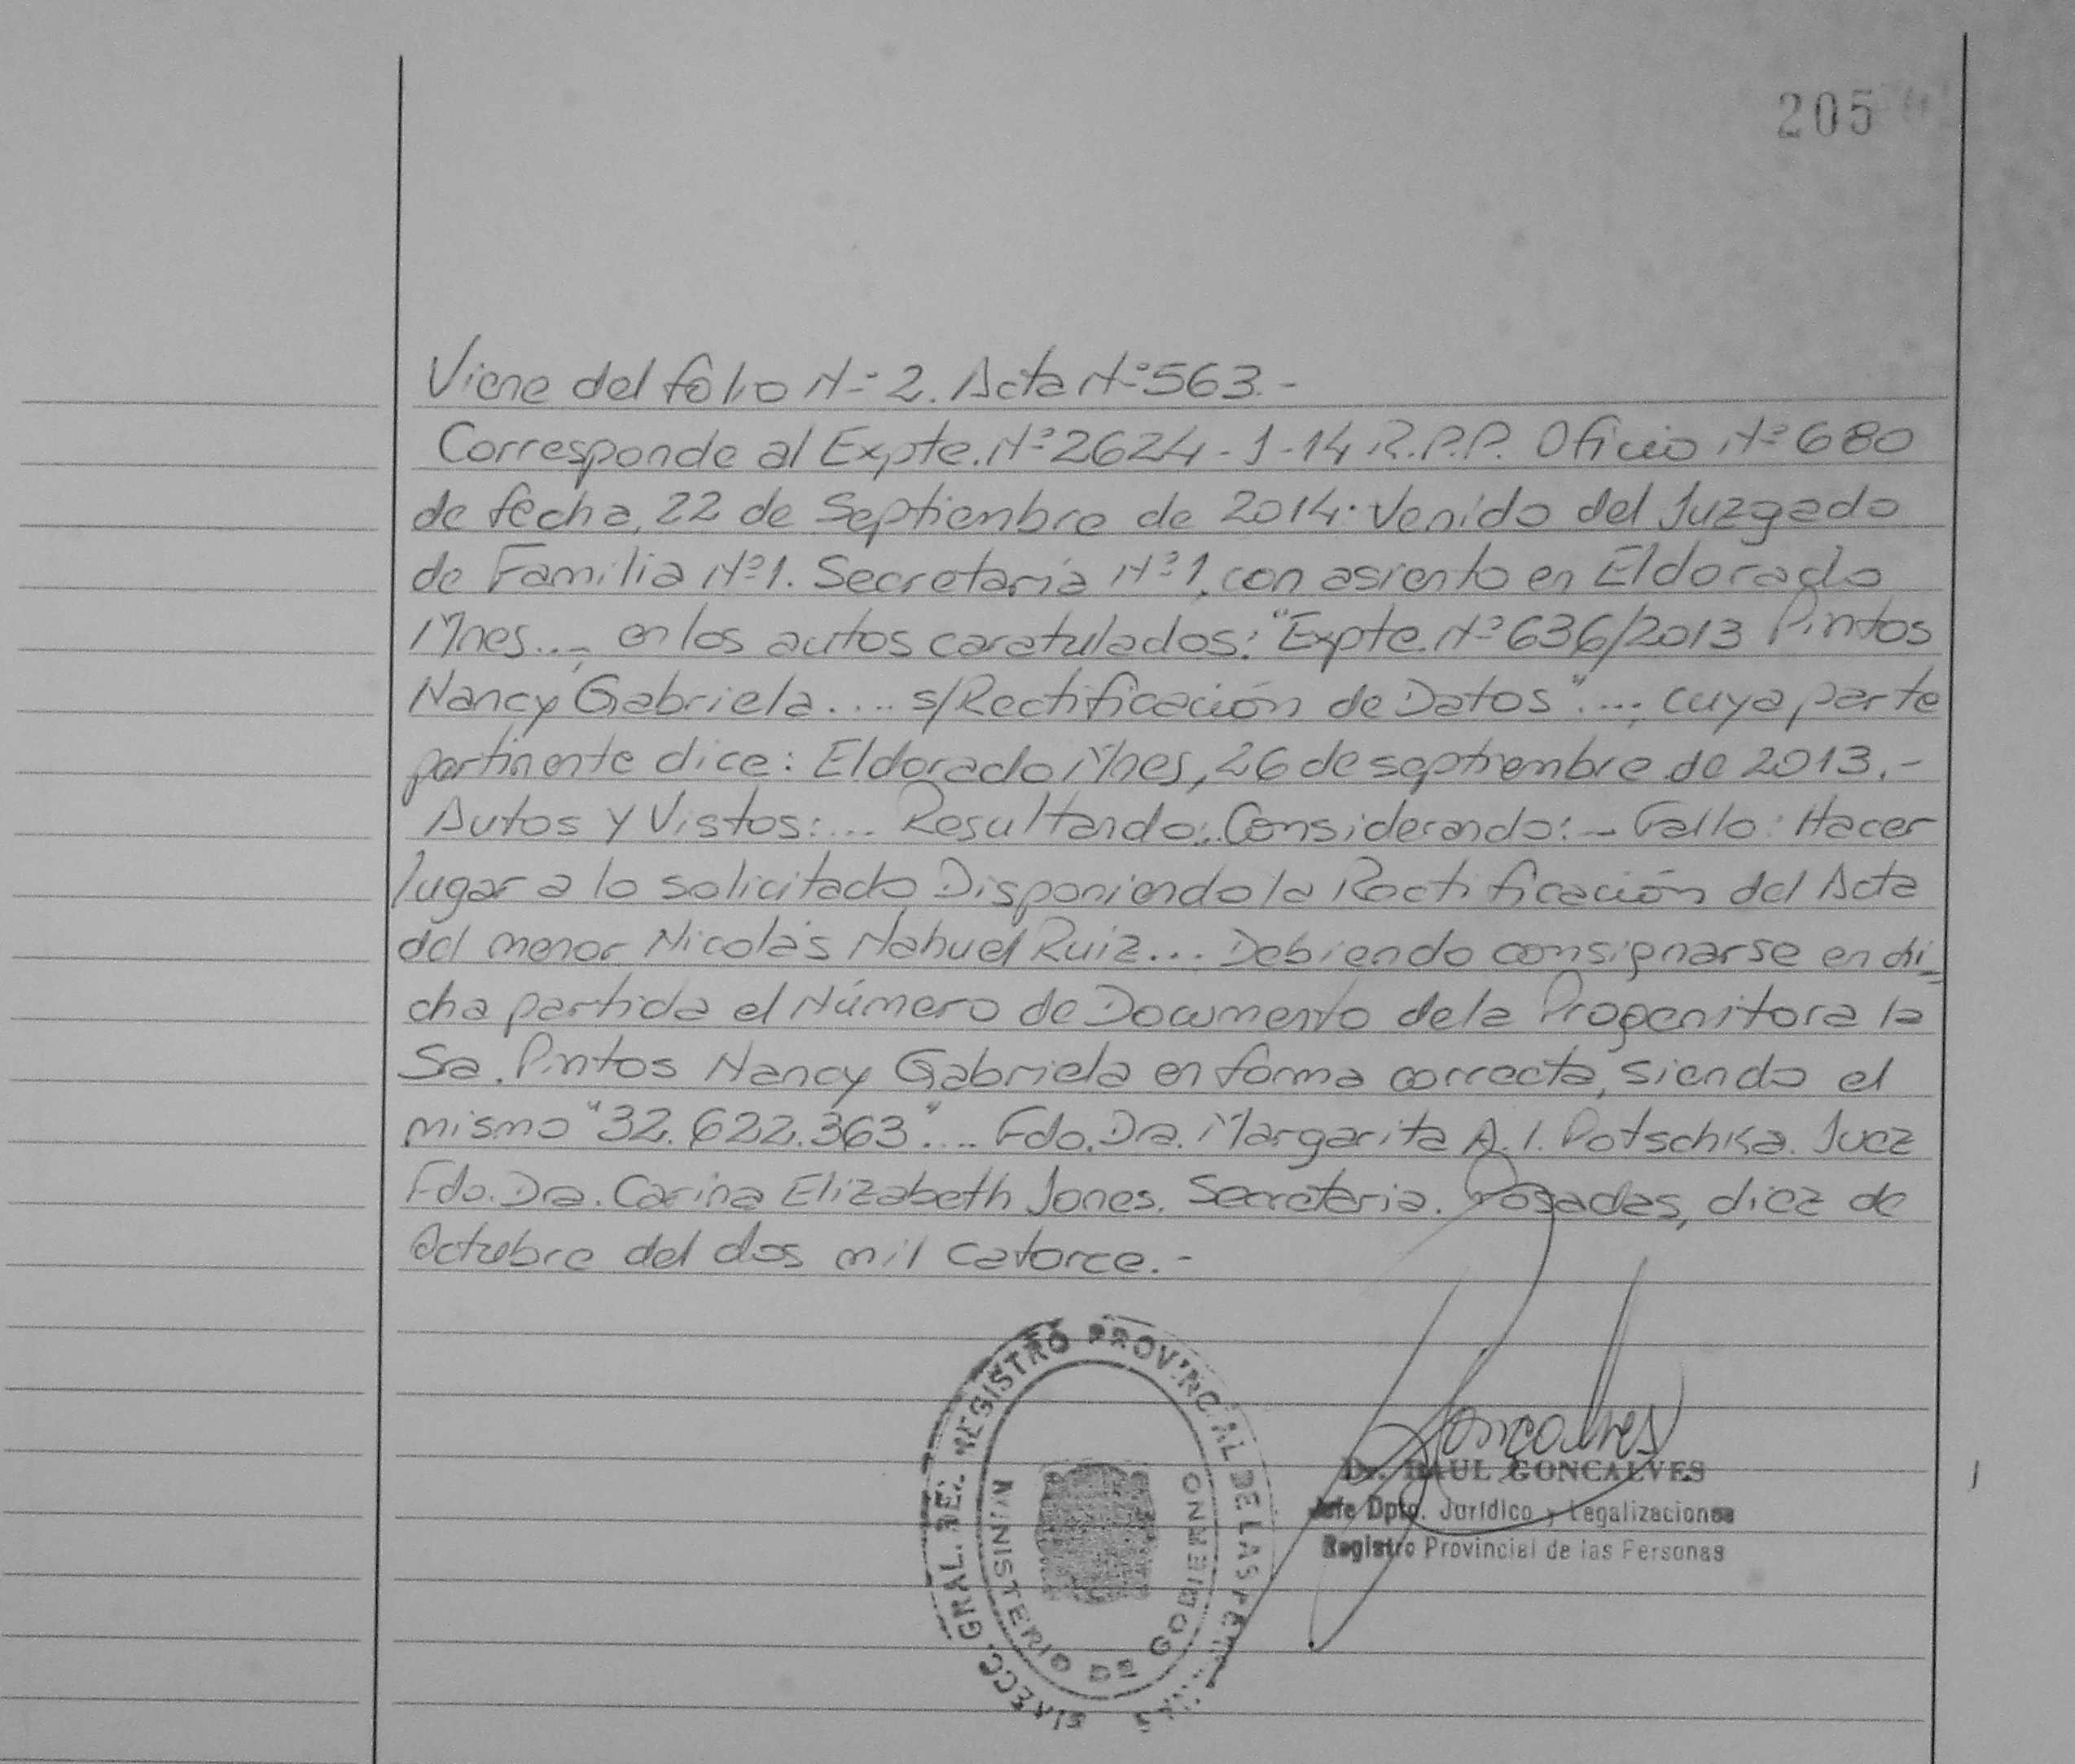 205
Viene del folio Nº 2. Acta Nº 563.-
Corresponde al Expte. Nº 2624-J-14 R.P.P. Oficio Nº 680
de fecha, 22 de Septiembre de 2014. Venido del Juzgado
de Familia Nº 1. Secretaría Nº 1, con asiento en Eldorado
Mnes..., en los autos caratulados: "Expte. Nº 636/2013 Pintos
Nancy Gabriela.... s/Rectificación de Datos"...., cuya parte
pertinente dice: Eldorado Mnes, 26 de septiembre de 2013.-
Autos y Vistos:... Resultando:. Considerando:- Fallo: Hacer
lugar a lo solicitado Disponiendo la Rectificación del Acta
del menor Nicolás Nahuel Ruiz... Debiendo consignarse en di-
cha partida el Número de Documento de la Progenitora la
Sa. Pintos Nancy Gabriela en forma correcta, siendo el
mismo "32.622.363".... Fdo. Dra. Margarita A. I. Potschka. Juez
Fdo. Dra. Carina Elizabeth Jones. Secretaria. Posadas, diez de
Octubre del dos mil catorce.-
DIRECC. GRAL. DEL REGISTRO PROVINCIAL DE LAS PERSONAS
MINISTERIO DE GOBIERNO
Goncalves
Dr. RAUL GONCALVES
Jefe Dpto. Jurídico y Legalizaciones
Registro Provincial de las Personas